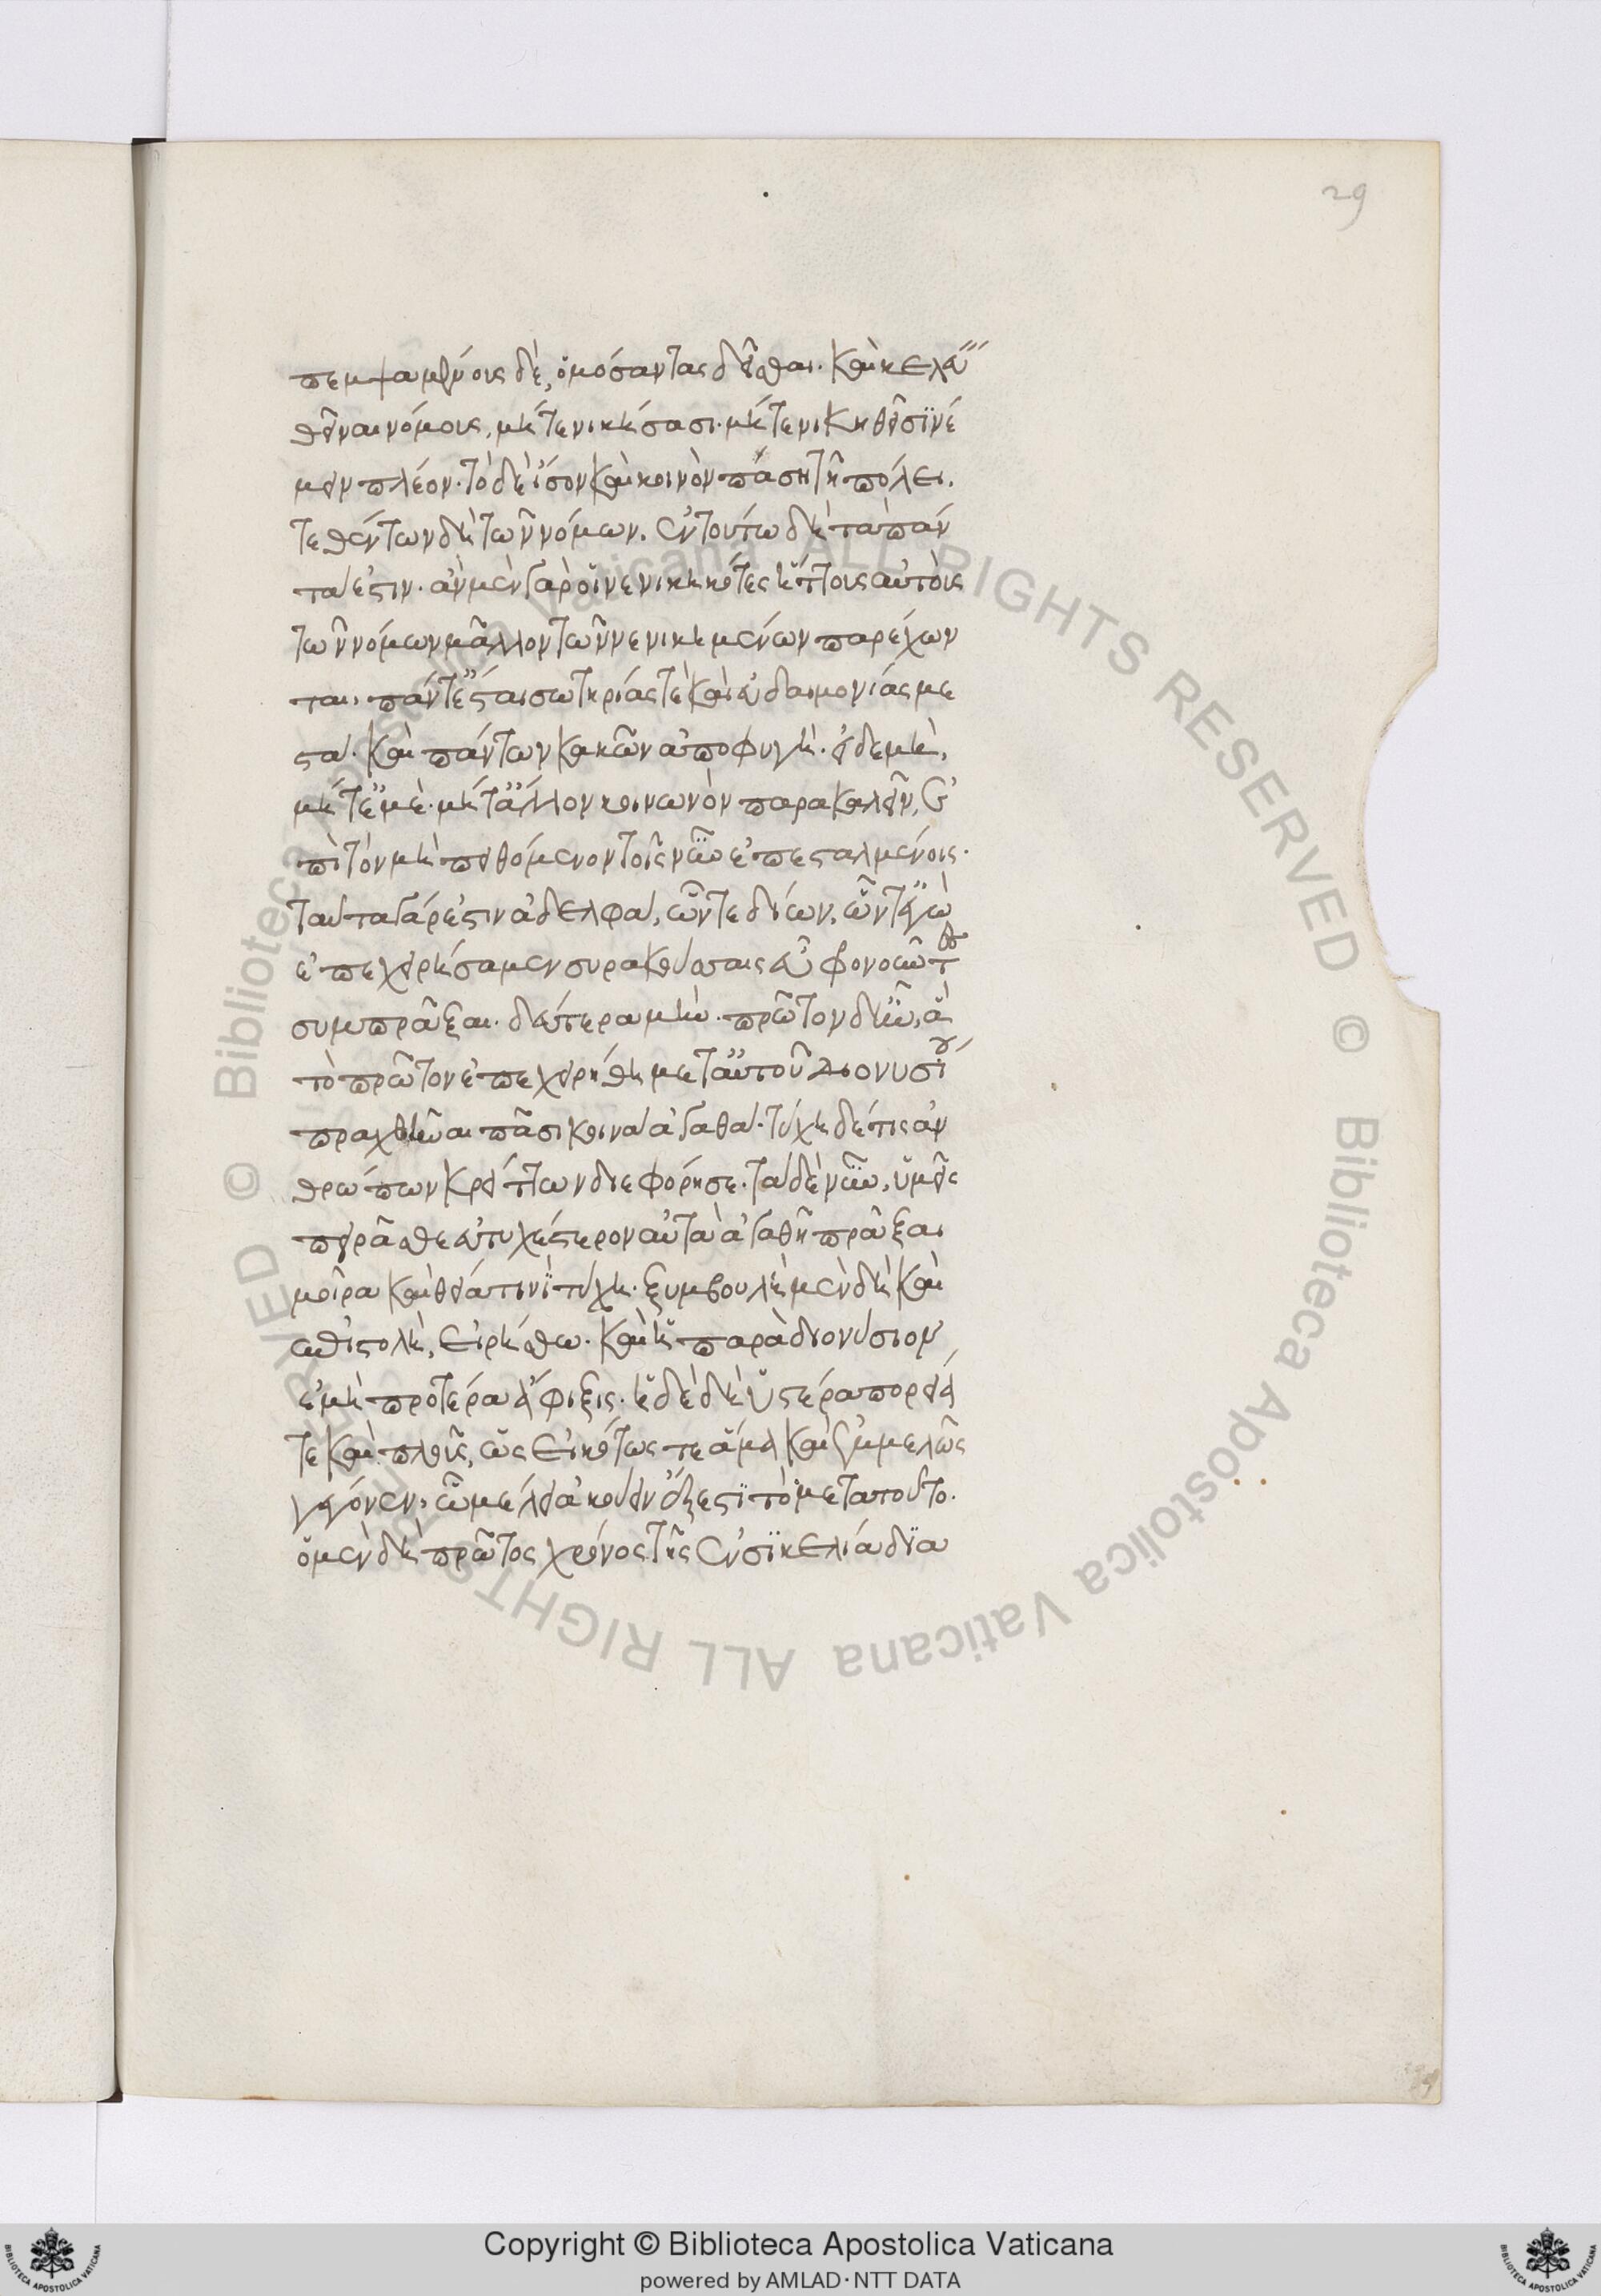 29
πεμψαμένους δὲ, ὀμόσαντας δεῖσθαι. καὶ κελεύ
θεῖναι νόμους, μήτε νικήσασι. μήτε νικηθεῖσϊ νέ
μειν πλέον. τὸ δὲ ἴσον καὶ κοινὸν πάσῃ τῇ πόλει.
τεθέντων δὲ τῶν νόμων. ἐν τούτω δὴ τὰ πάν
τα ἐστιν. ἂν μὲν γὰρ οἱ νενικηκότες ἥττους αὑτοὺς
τῶν νόμων μᾶλλον τῶν νενικημένων παρέχων
ται, πάντ' ἔσται σωτηρίας τὲ καὶ εὐδαιμονίας με
στά. καὶ πάντων κακῶν ἀποφυγή. εἰ δε μὴ,
μήτ' ἐμὲ. μήτ' ἄλλον κοινωνὸν παρακαλεῖν, ἐ
πὶ τὸν μὴ πειθόμενον τοῖς νῦν ἐπεσταλμένοις.
ταῦτα γάρ ἐστιν ἀδελφά, ὧν τε δίων, ὧν τ' ἐγὼ
ἐπεχειρήσαμεν συρακούσαις εὐφρονοῦντες
συμπρᾶξαι. δεύτερα μὴν. πρῶτον δ' ἦν, ἃ
τὸ πρῶτον ἐπεχειρήθη μετ' αὐτοῦ Διονυσίου
πραχθῆναι πᾶσι κοινὰ ἀγαθά. τύχη δέ τις ἀν
θρώπων κρείττων διεφόρησε. τὰ δὲ νῦν, ὑμεῖς
πειρᾶσθε εὐτυχέστερον αὐτὰ ἀγαθῇ πρᾶξαι
μοίρα καὶ θεία τινὶ τύχῃ. ξυμβουλὴ μὲν δὴ καὶ
ἐπιστολὴ, εἰρήσθω. καὶ ἡ παρὰ διονύσιον
ἐμὴ προτέρα ἄφιξις. ἡ δὲ δὴ ὑστέρα πορεία
τε καὶ πλοῦς, ὡς εἰκότως τε ἅμα καὶ ἐμμελῶς
γέγονεν, ᾧ μέλει ἀκούειν ἔξεστϊ τὸ μετὰ τοῦτο.
ὁ μὲν δὴ πρῶτος χρόνος τῆς ἐν σϊκελία δϊα
Copyright © Biblioteca Apostolica Vaticana
powered by AMLAD·NTT DATA
© Biblioteca Apostolica Vaticana ALL RIGHTS RESERVED © Biblioteca Apostolica Vaticana ALL RIGHTS RESERVED